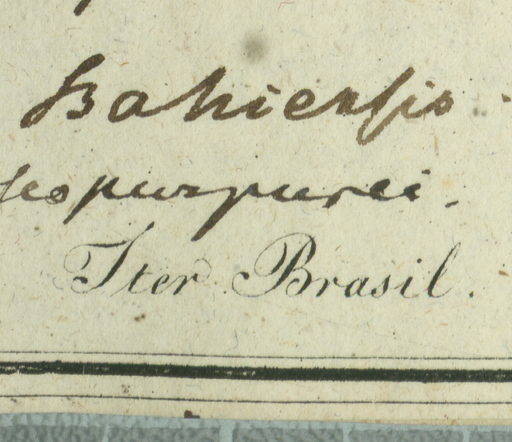 Bahiensis
purpurei.
Iter Brasil.